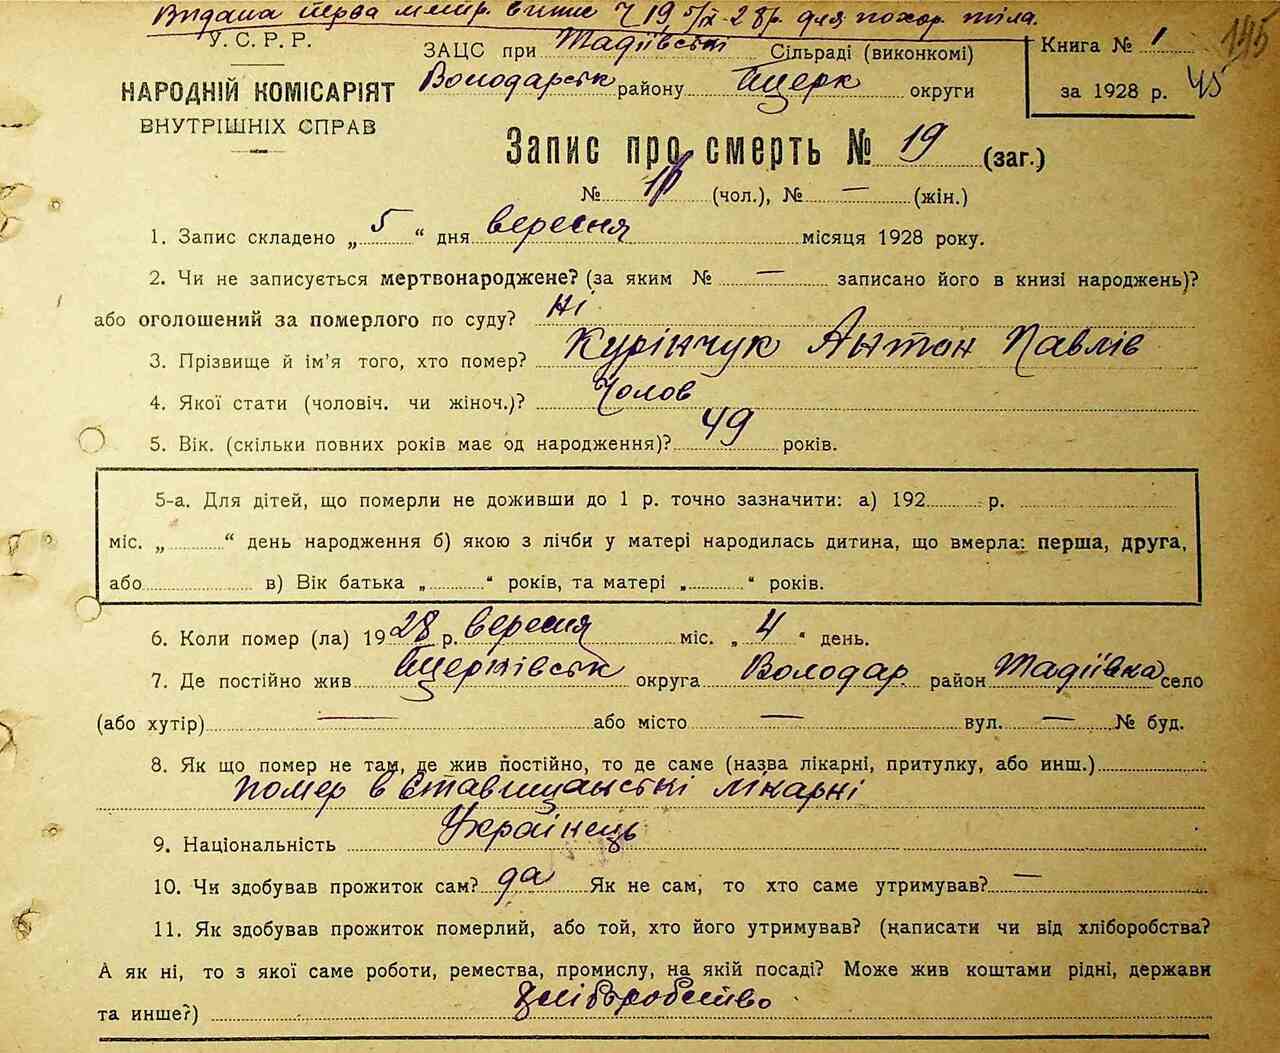 Видана перва виписка Ч 19 5/IX-28р. для похор. тіла.
195
У. С. Р. Р.
НАРОДНІЙ КОМІСАРІЯТ
ВНУТРІШНІХ СПРАВ
ЗАЦС при Тадіївські Сільраді (виконкомі)
Володарськ району Бцерк округи
Книга № 1
за 1928 р. 45
Запис про смерть № 19 (заг.)
№ (чол.), № — (жін.)
1. Запис складено „ 5 “ дня вересня місяця 1928 року.
2. Чи не записується мертвонароджене? (за яким № — записано його в книзі народжень)?
або оголошений за померлого по суду? Ні
3. Прізвище й ім'я того, хто помер? Курінчук Антон Павлів
4. Якої стати (чоловіч. чи жіноч.)? Чолов
5. Вік. (скільки повних років має од народження)? 49 років.
5-а. Для дітей, що померли не доживши до 1 р. точно зазначити: а) 192 р.
міс. „ “ день народження б) якою з лічби у матері народилась дитина, що вмерла: перша, друга,
або в) Вік батька „ “ років, та матері „ “ років.
6. Коли помер (ла) 1928 р. вересня міс. „ 4 “ день.
7. Де постійно жив Бцерківськ округа Володар. район Тадіївка село
(або хутір) — або місто — вул. — № буд.
8. Як що помер не там, де жив постійно, то де саме (назва лікарні, притулку, або инш.)
Помер в Ставищанські лікарні
9. Національність Українець
10. Чи здобував прожиток сам? да Як не сам, то хто саме утримував? —
11. Як здобував прожиток померлий, або той, хто його утримував? (написати чи від хліборобства?
А як ні, то з якої саме роботи, ремества, промислу, на якій посаді? Може жив коштами рідні, держави
та инше?) Хліборобство